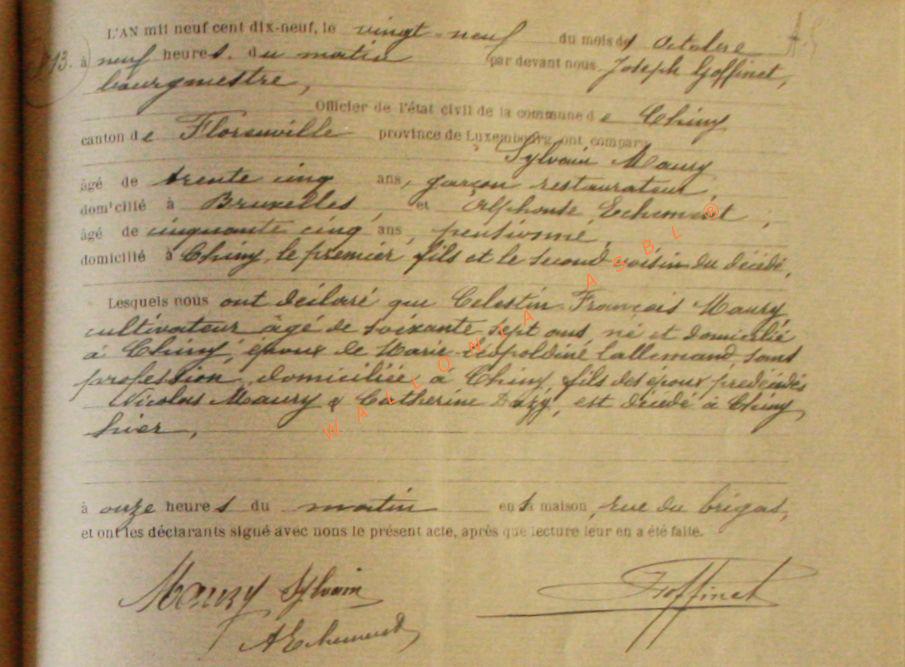 L'AN mil neuf cent dix-neuf, le vingt-neuf du mois de octobre
à neuf heures, du matin par devant nous, Joseph Goffinet,
bourgmestre,
Officier de l'état civil de la commune de Chiny
canton de Florenville province de Luxembourg, ont comparu
Sylvain Maury
âgé de trente cinq ans, garçon restaurateur,
domicilié à Bruxelles, et Alphonse Echement,
âgé de cinquante cinq ans, pensionné,
domicilié à Chiny, le premier fils et le second voisin du décédé,
Lesquels nous ont déclaré que Celestin François Maury
cultivateur âgé de soixante sept ans, né et domicilié
à Chiny, époux de Marie-Léopoldine Lallemand, sans
profession, domiciliée à Chiny, fils des époux prédécédés
Nicolas Maury & Catherine, est décédé à Chiny
hier,
à onze heures du matin en sa maison, rue du
et ont les déclarants signé avec nous le présent acte, après que lecture leur en a été faite.
Maury Sylvain
Goffinet
A Echement
WALLONIA ASBL ®